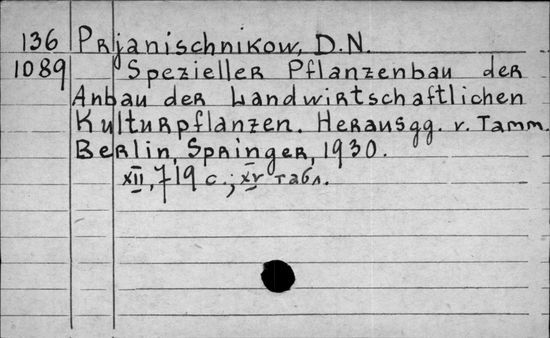 136 Prjanischnikow, D.N.
1089 Spezieller Pflanzenbau der
Anbau der Landwirtschaftlichen
Kulturpflanzen. Herausgg. v. Tamm.
Berlin, Springer, 1930.
XII, 719 с.; XV табл.